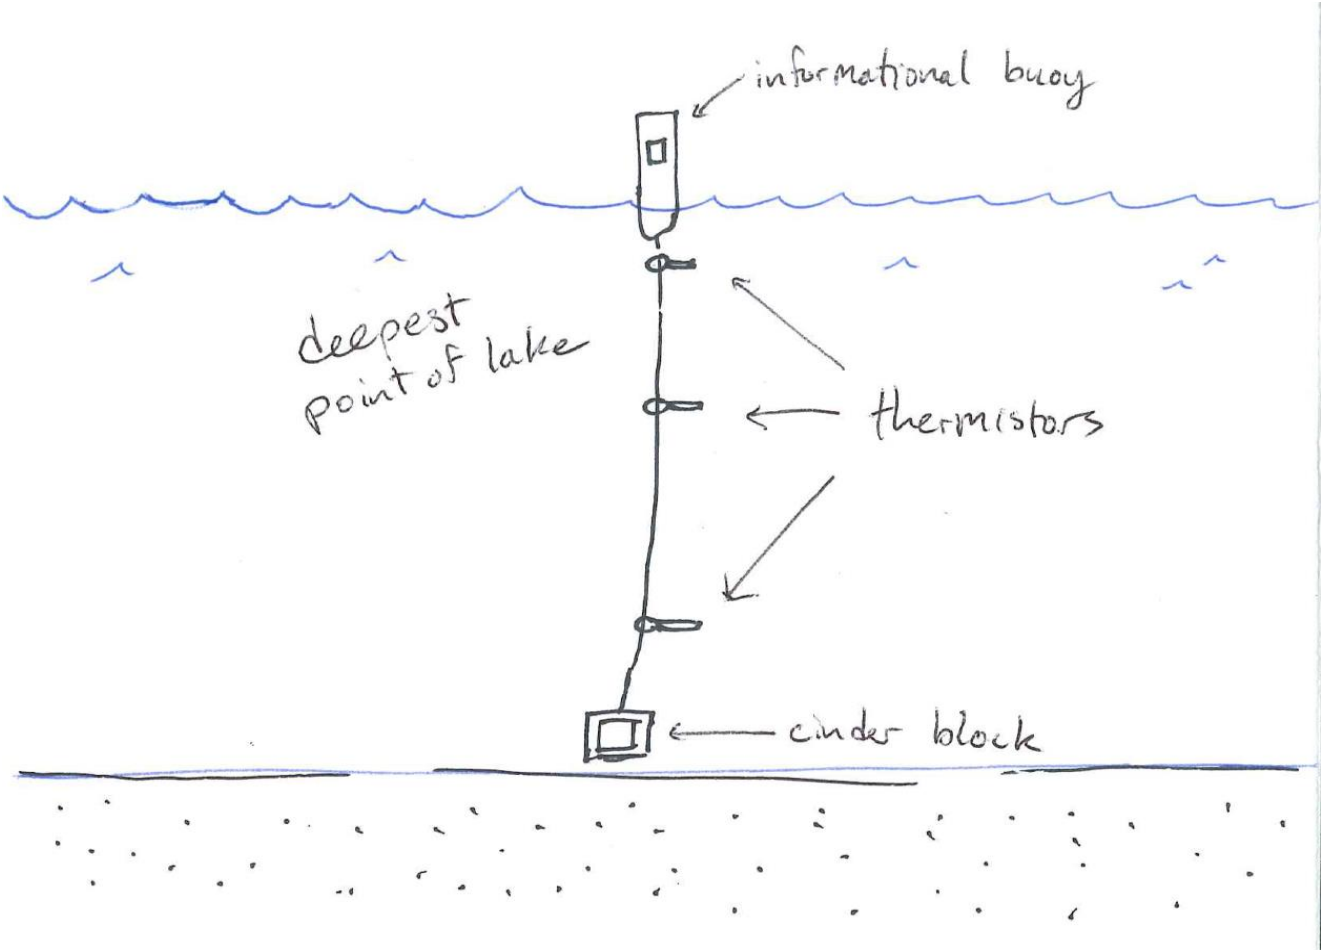 informational buoy
deepest
point of lake
thermistors
cinder block